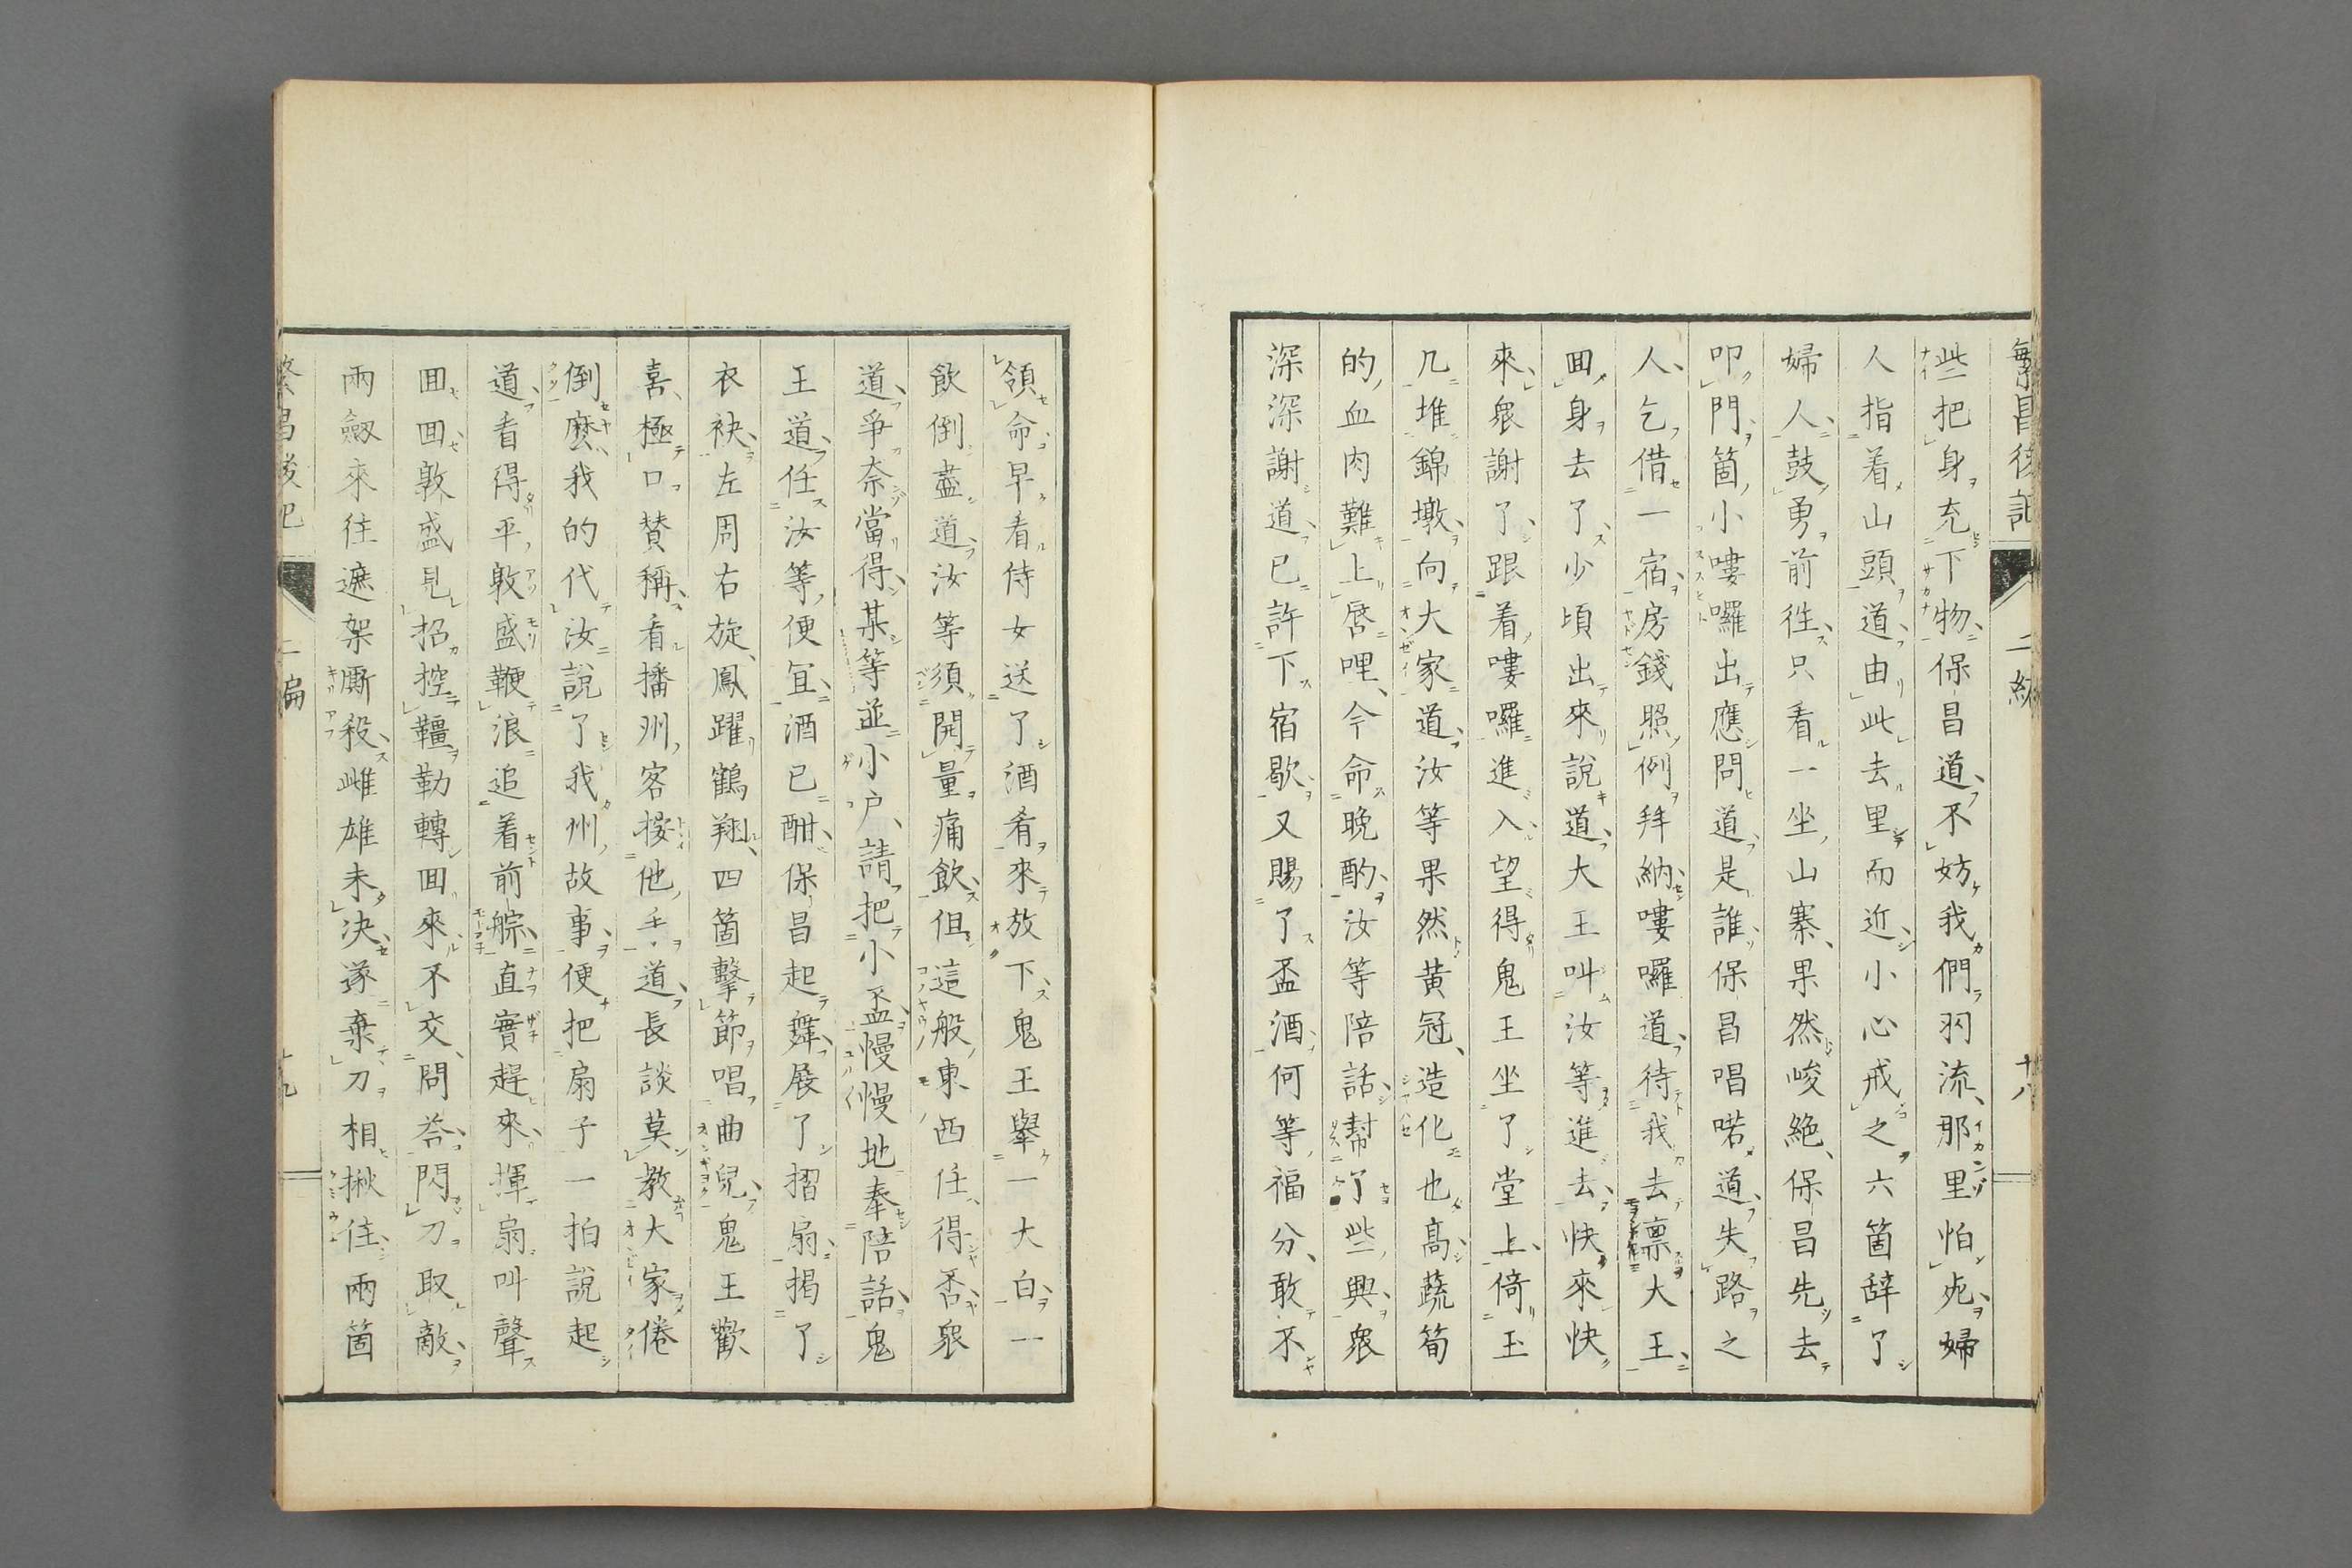 繁昌後記 二編 十八
些把身充下物保昌道不妨我們羽流那里怕死婦
人指着山頭道由此去里而近小心戒之六箇辞了
婦人鼓勇前徃只看一坐山寨果然峻絶保昌先去
叩門箇小嘍囉出應問道是誰保昌唱喏道失路之
人乞借一宿房錢照例拜納嘍囉道待我去禀大王
囬身去了少頃出來説道大王叫汝等進去快來快
來衆謝了跟着嘍囉進入望得鬼王坐了堂上倚玉
几堆錦墩向大家道汝等果然黄冠造化也高蔬筍
的血肉難上唇哩今命晩酌汝等陪話幇了些興衆
深深謝道已許下宿歇又賜了盃酒何等福分敢不
領命早看侍女送了酒肴來放下鬼王擧一大白一
飲倒盡道汝等須開量痛飲但這般東西任得否衆
道爭奈當得某等並小户請把小盃慢慢地奉陪話鬼
王道任汝等便宜酒已酣保昌起舞展了摺扇掲了
衣袂左周右旋鳳躍鶴翔四箇擊節唱曲兒鬼王歡
喜極口賛稱看播州客接他手道長談莫教大家倦
倒麽我的代汝説了我州故事便把扇子一拍説起
道看得平敦盛鞭浪追着前艅直實趕來揮扇叫聲
囬囬敦盛見招控韁勒轉囬來不交問答閃刀取敵
兩劔來往遮架厮殺雌雄未决遂棄刀相揪住兩箇
繁昌後記 二編 十九